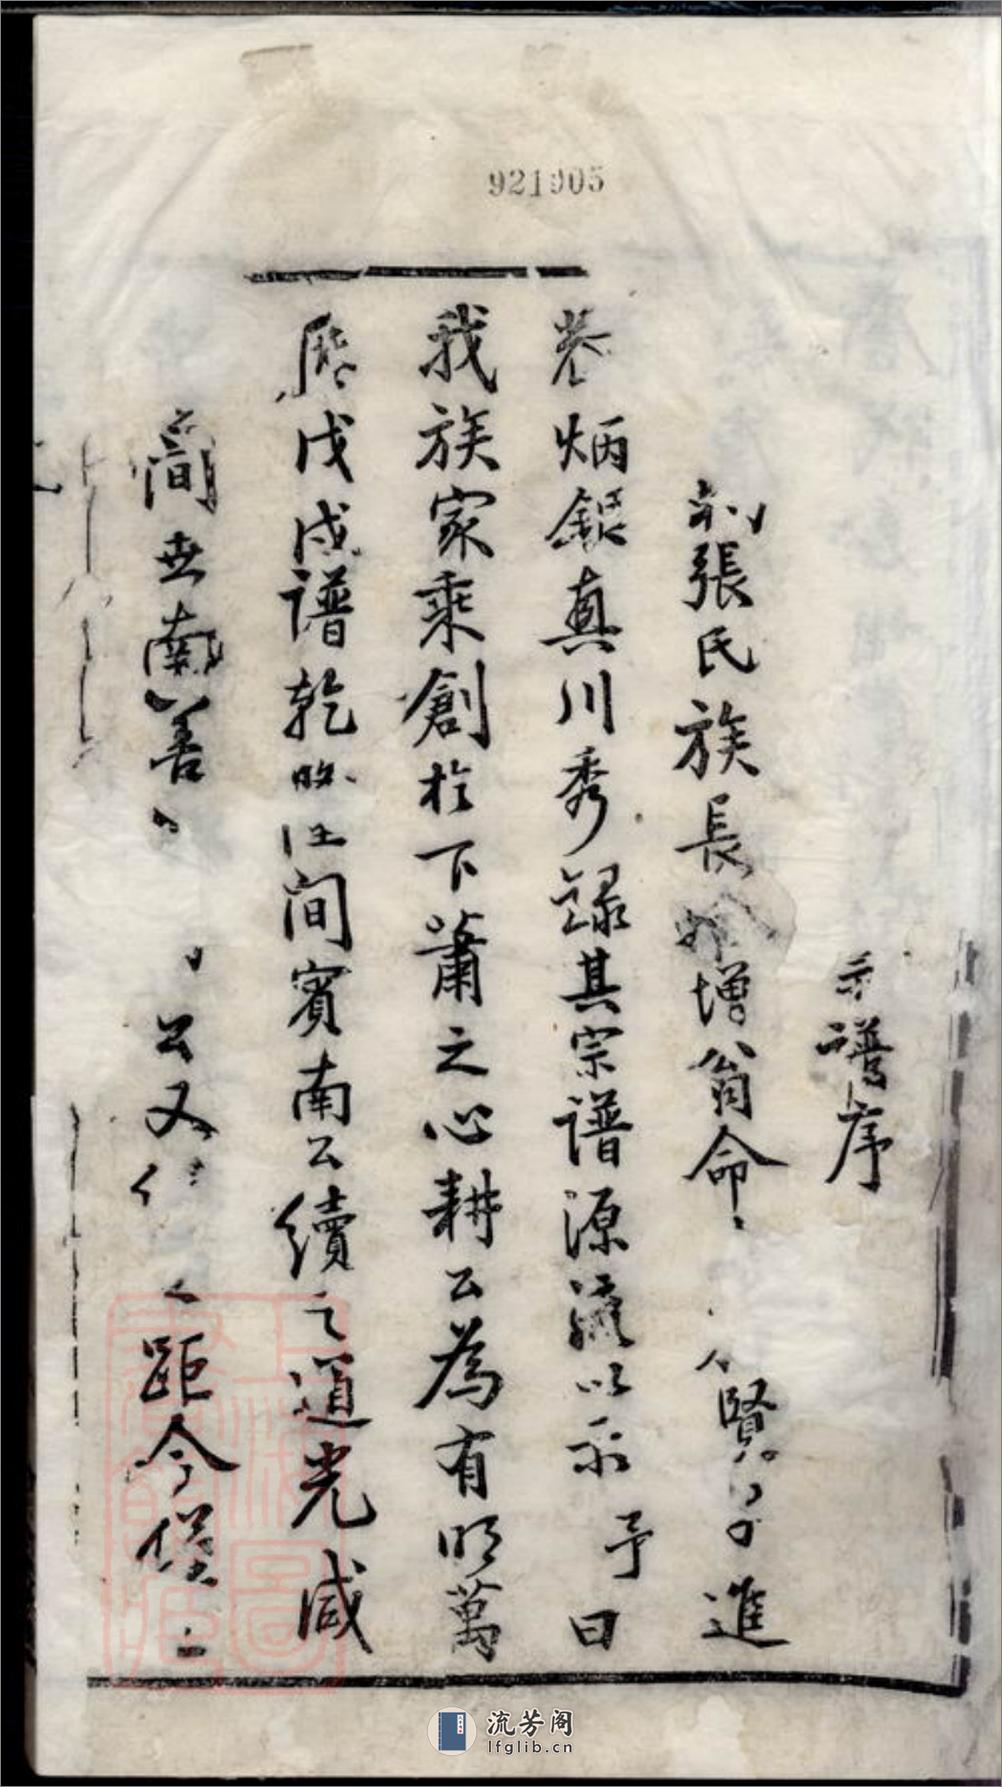 921905
譜序
張氏族長增翁命賢進
炳銀真川秀錄其宗譜源流以示予曰
我族家乘創於下蕭之心耕公為有明萬
歷戊戌譜乾間賓南公續之道光咸
間世南善公又距今僅
上海圖書館藏
流芳阁
lfglib.cn